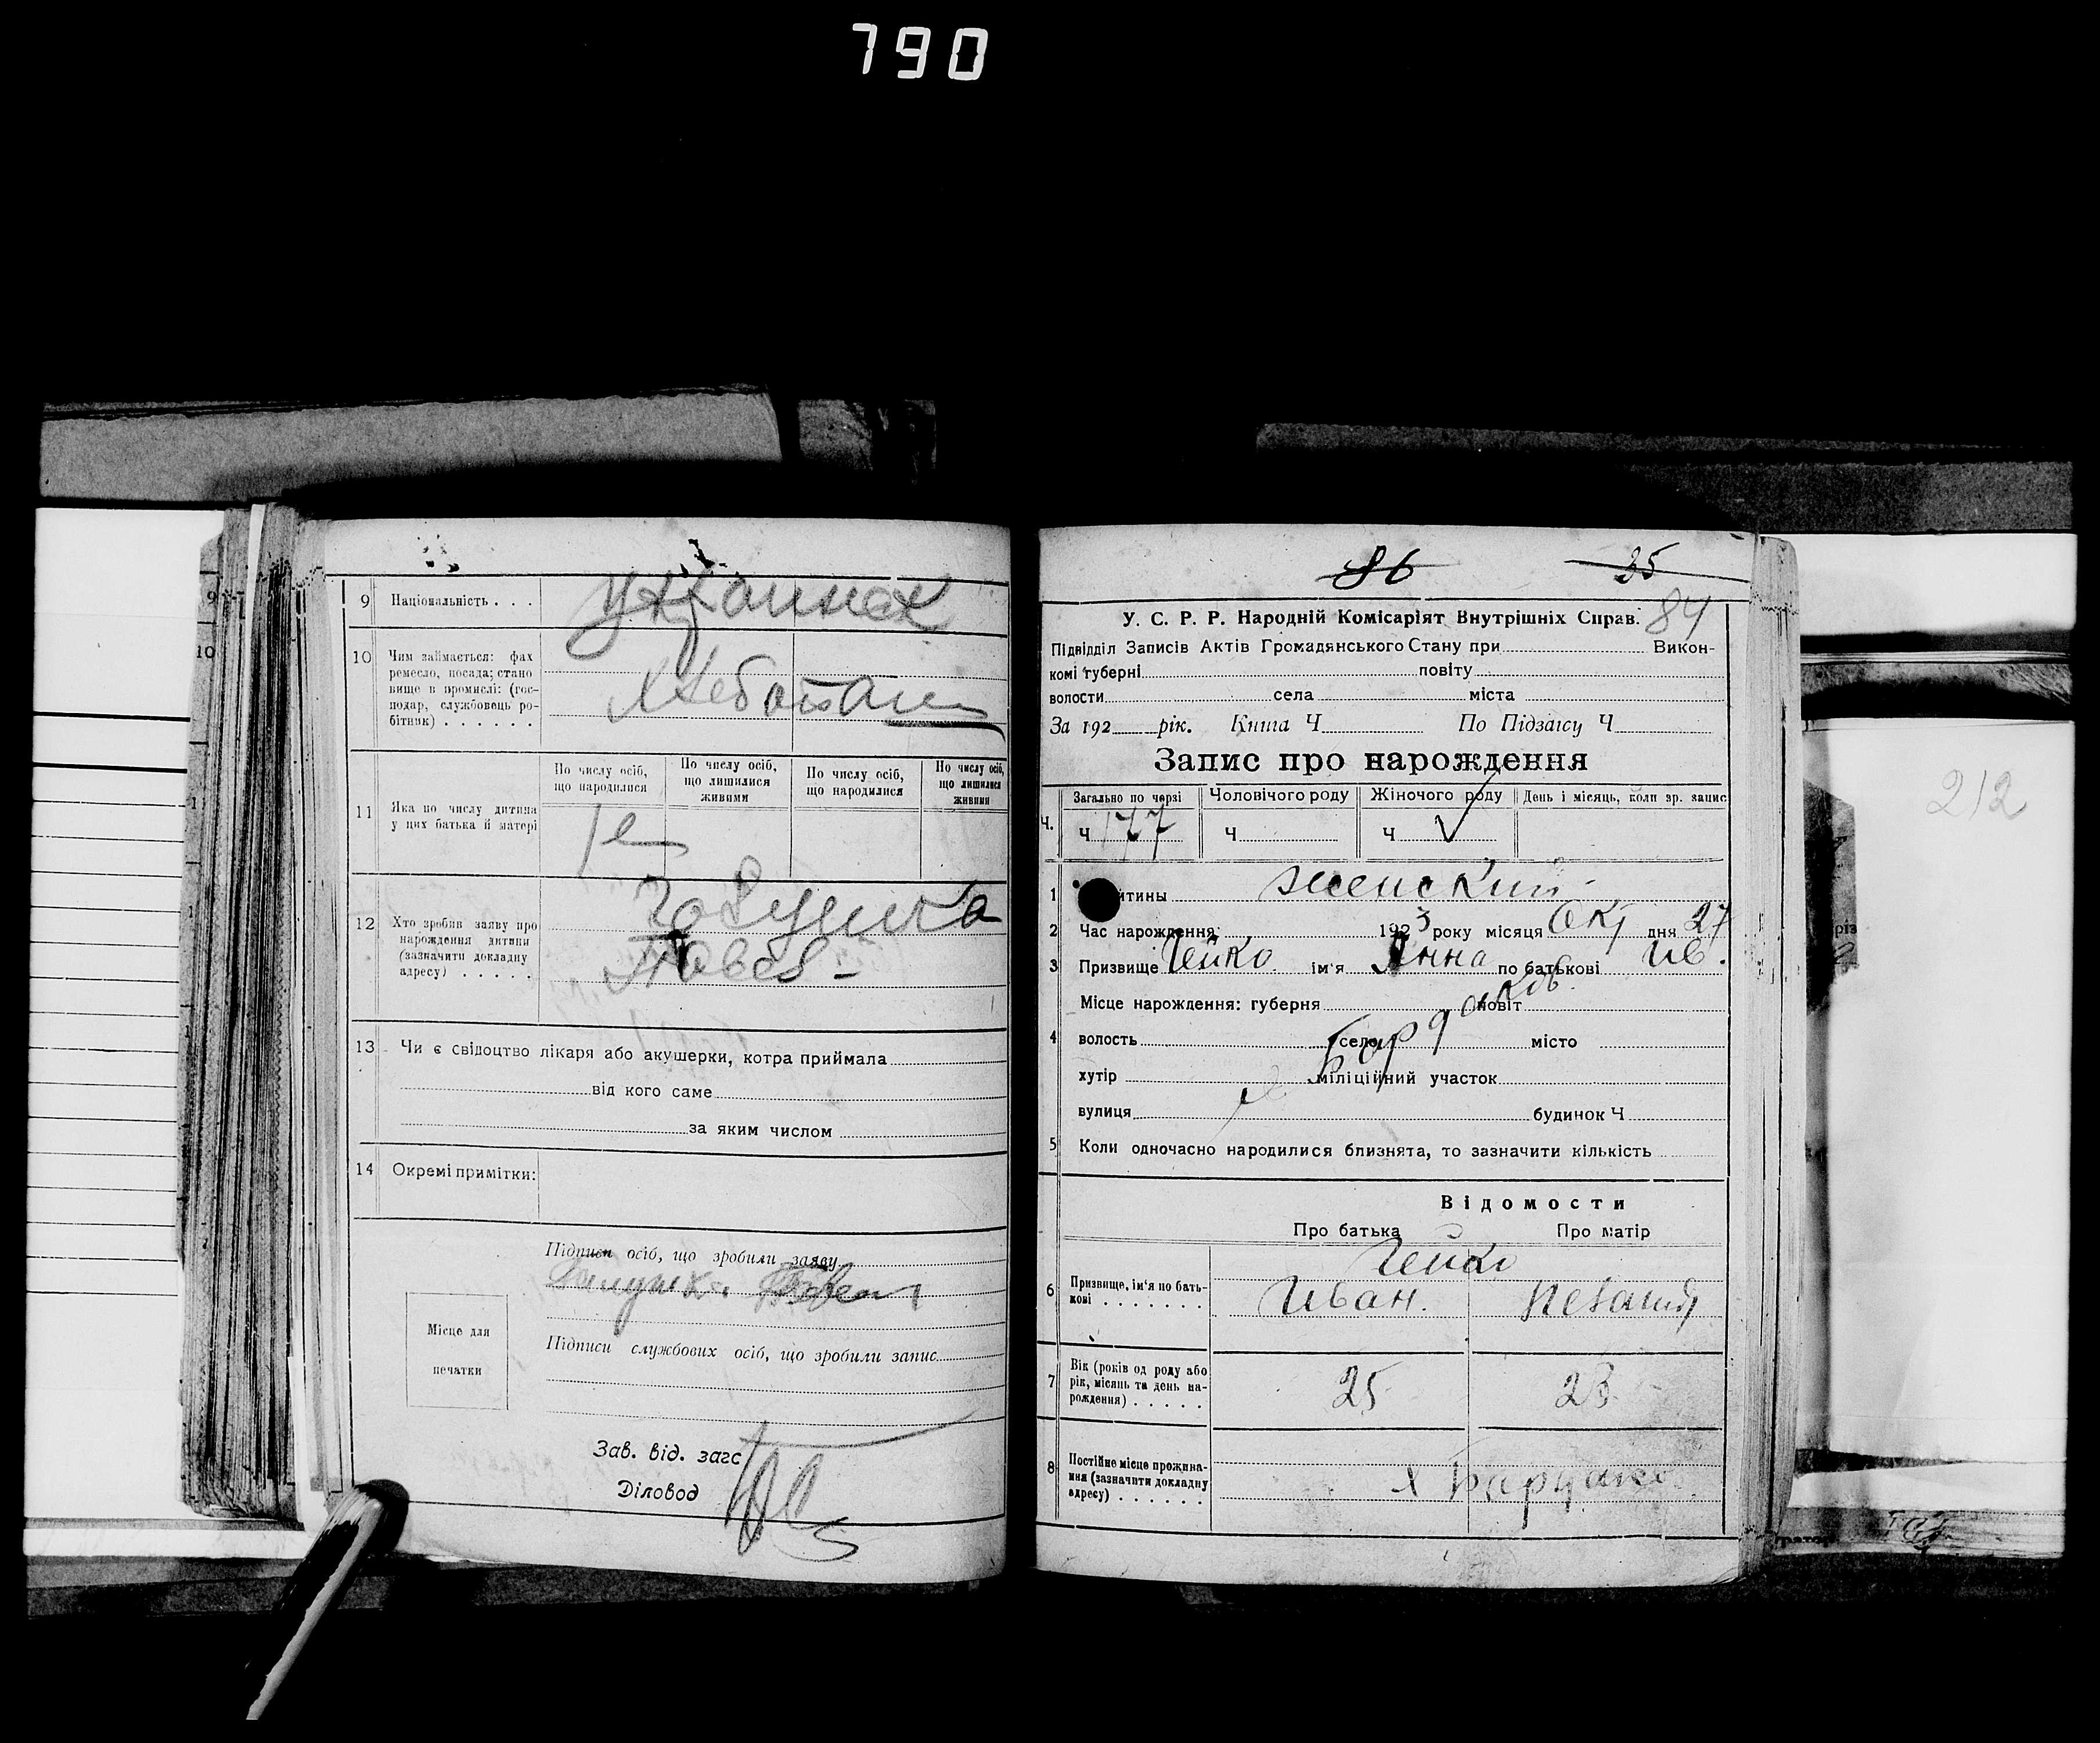 790
9 Національність . . . Украинец
10 Чим займається: фах
ремесло, посада; стано
вище в промислі: (гос-
подар, службовець ро-
бітник) . . . . . .
Хлебопаш
По числу осіб, що народилися
По числу осіб, що лишилися живими
По числу осіб, що народилися
По числу осіб, що лишилися живими
11 Яка по числу дитина
у цих батька й матері
12 Хто зробив заяву про
нарождення дитини
(зазначити докладну
адресу) . . . . .
Павел
13 Чи є свідоцтво лікаря або акушерки, котра приймала
від кого саме
за яким числом
14 Окремі примітки:
Підписи осіб, що зробили заяву
Місце для
печатки
Підписи службових осіб, що зробили запис
Зав. від. загс
Діловод
86 35
84
У. С. Р. Р. Народній Комісаріят Внутрішніх Справ.
Підвідділ Записів Актів Громадянського Стану при Викон-
комі губерні повіту
волости села міста
За 192 рік. Книга Ч По Підзагсу Ч
Запис про народження
Загально по черзі Чоловічого роду Жіночого роду День і місяць, коли зр. запис
Ч. Ч 177 Ч Ч V
1 итини женский
2 Час народження: 1923 року місяця Окт дня 27
3 Призвище Чейко ім'я Анна по батькові Ив.
Місце народження: губерня повіт
4 волость село місто
хутір міліційний участок
вулиця будинок Ч
5 Коли одночасно народилися близнята, то зазначити кількість
Відомости
Про батька Про матір
6 Призвище, ім'я по бать-
кові . . . . . . .
Чейко
Иван.
7 Вік (років од роду або
рік, місяць та день на-
рождення) . . . . .
25 23
8 Постійне місце прожива-
ння (зазначити докладну
адресу) . . . . . .
х
212